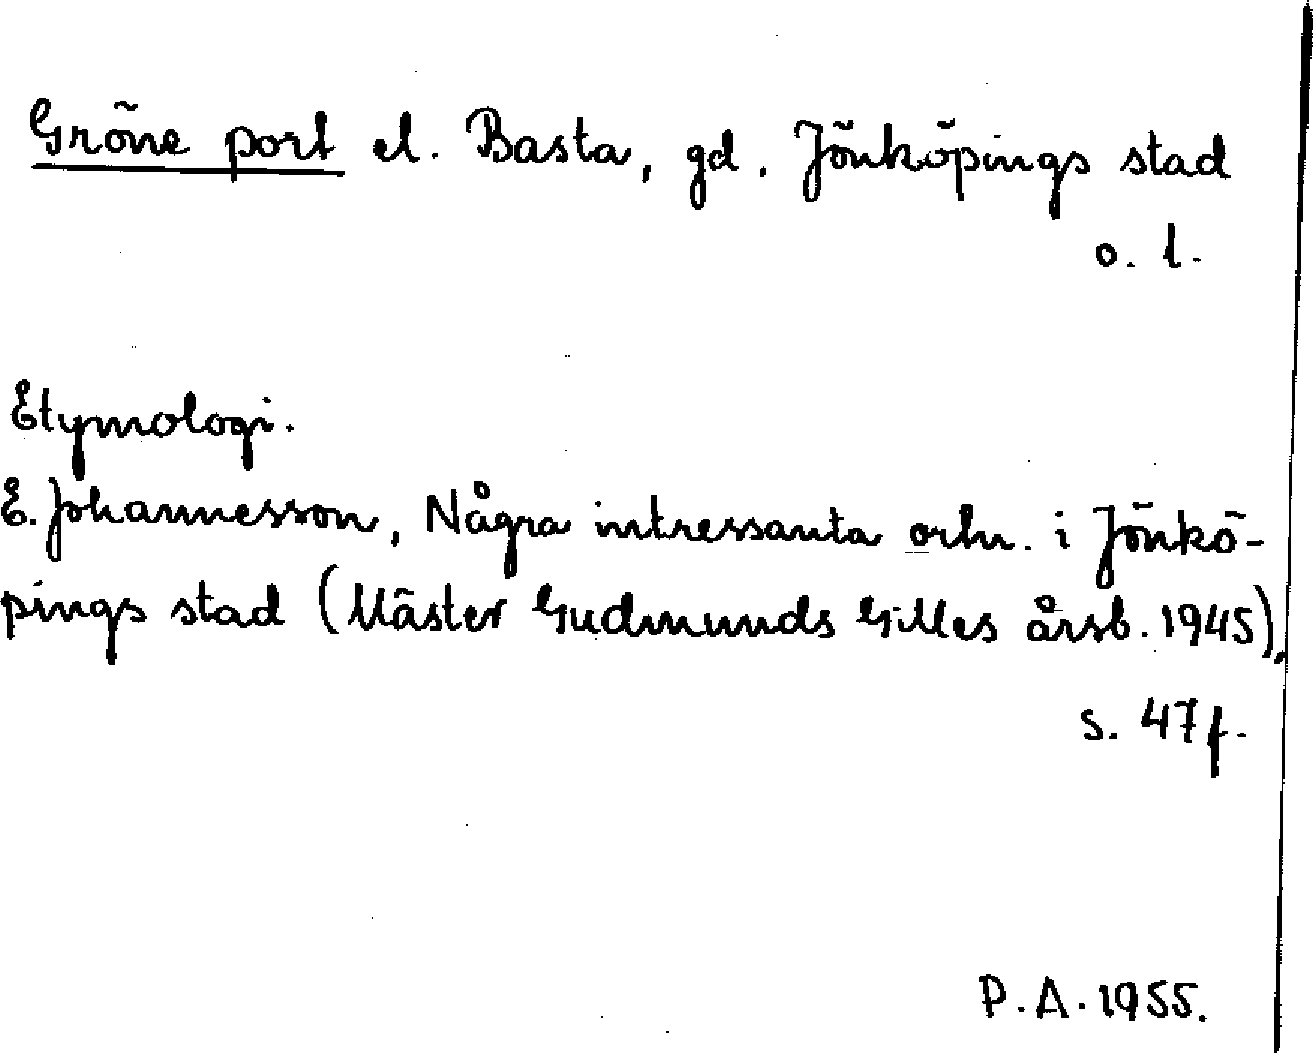 Gröne port el. Basta, gd. Jönköpings stad
o. l.
Etymologi.
E. Johannesson, Några intressanta ortn. i Jönkö-
pings stad (Mäster Gudmunds Gilles årsb. 1945),
s. 47 f.
P. A. 1955.